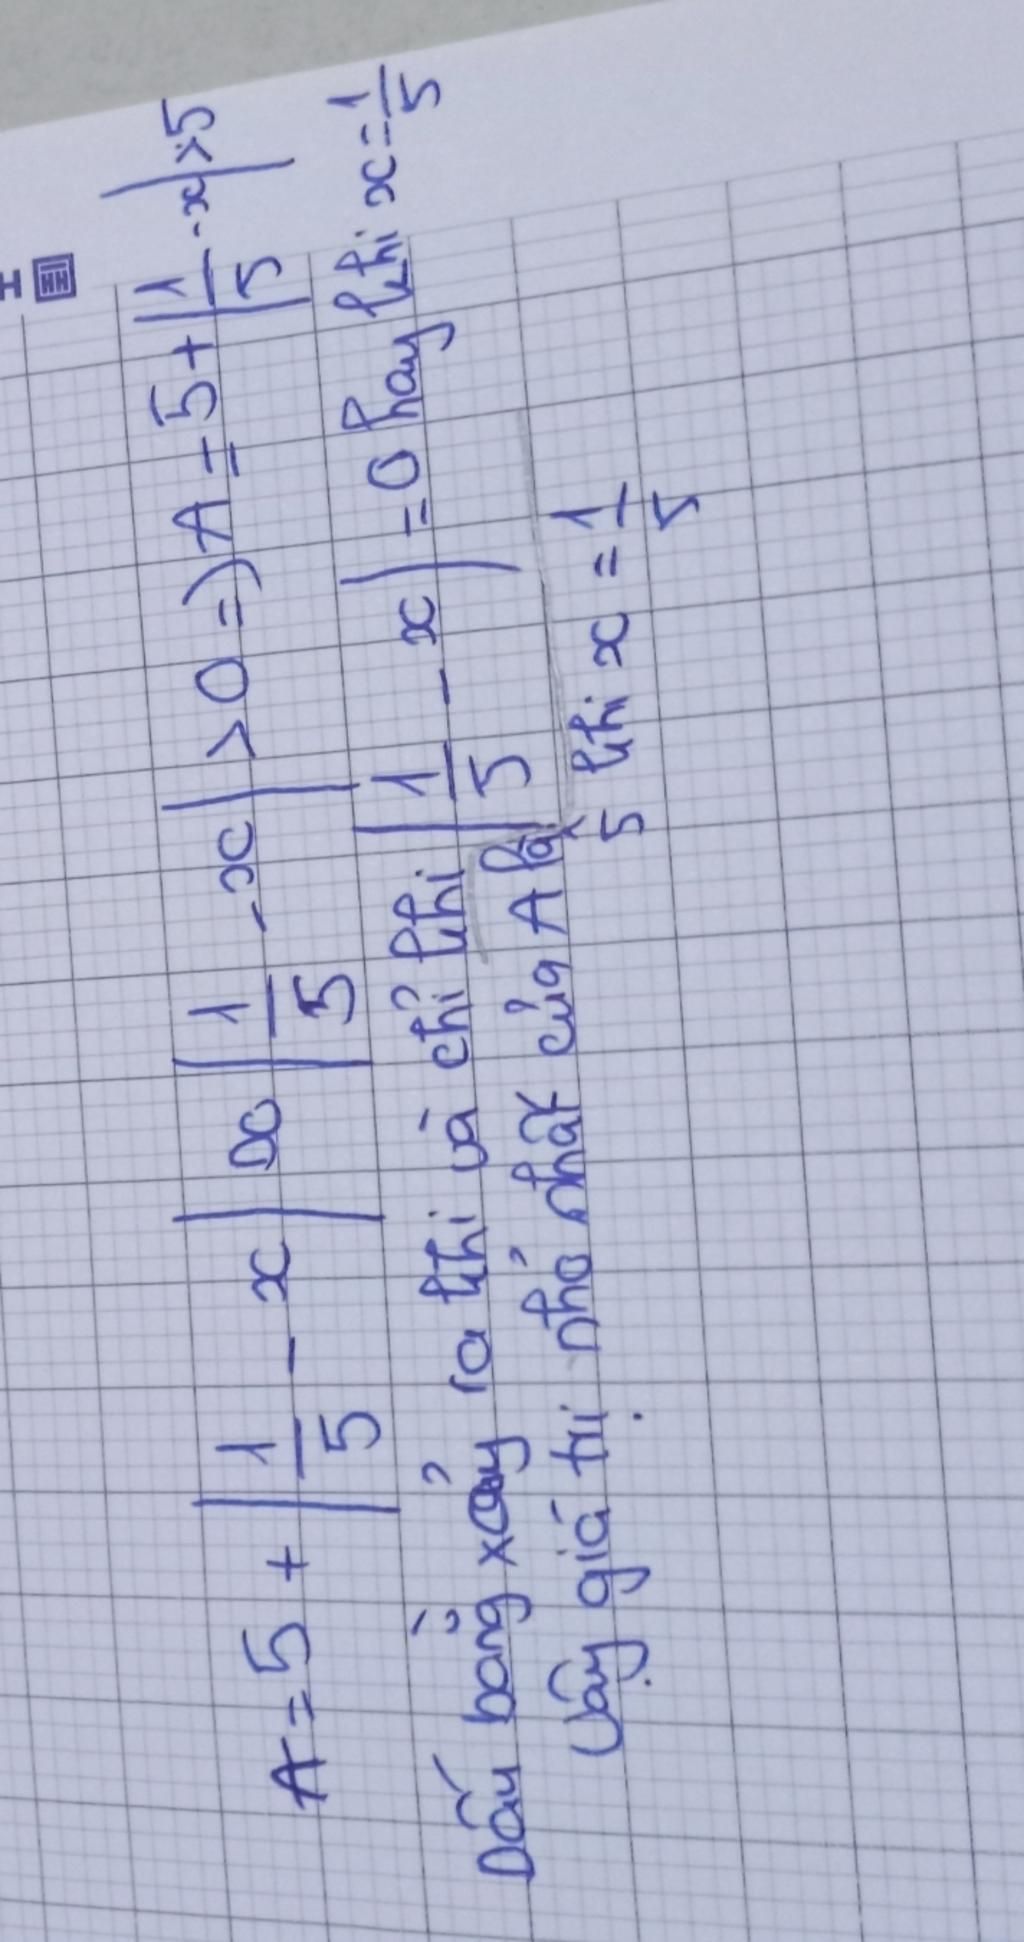 A = 5 + |1/5 - x| Do |1/5 - x| > 0 => A = 5 + |1/5 - x| > 5
Dấu bằng xảy ra khi và chỉ khi |1/5 - x| = 0 hay khi x = 1/5
Vậy giá trị nhỏ nhất của A là 5 khi x = 1/5